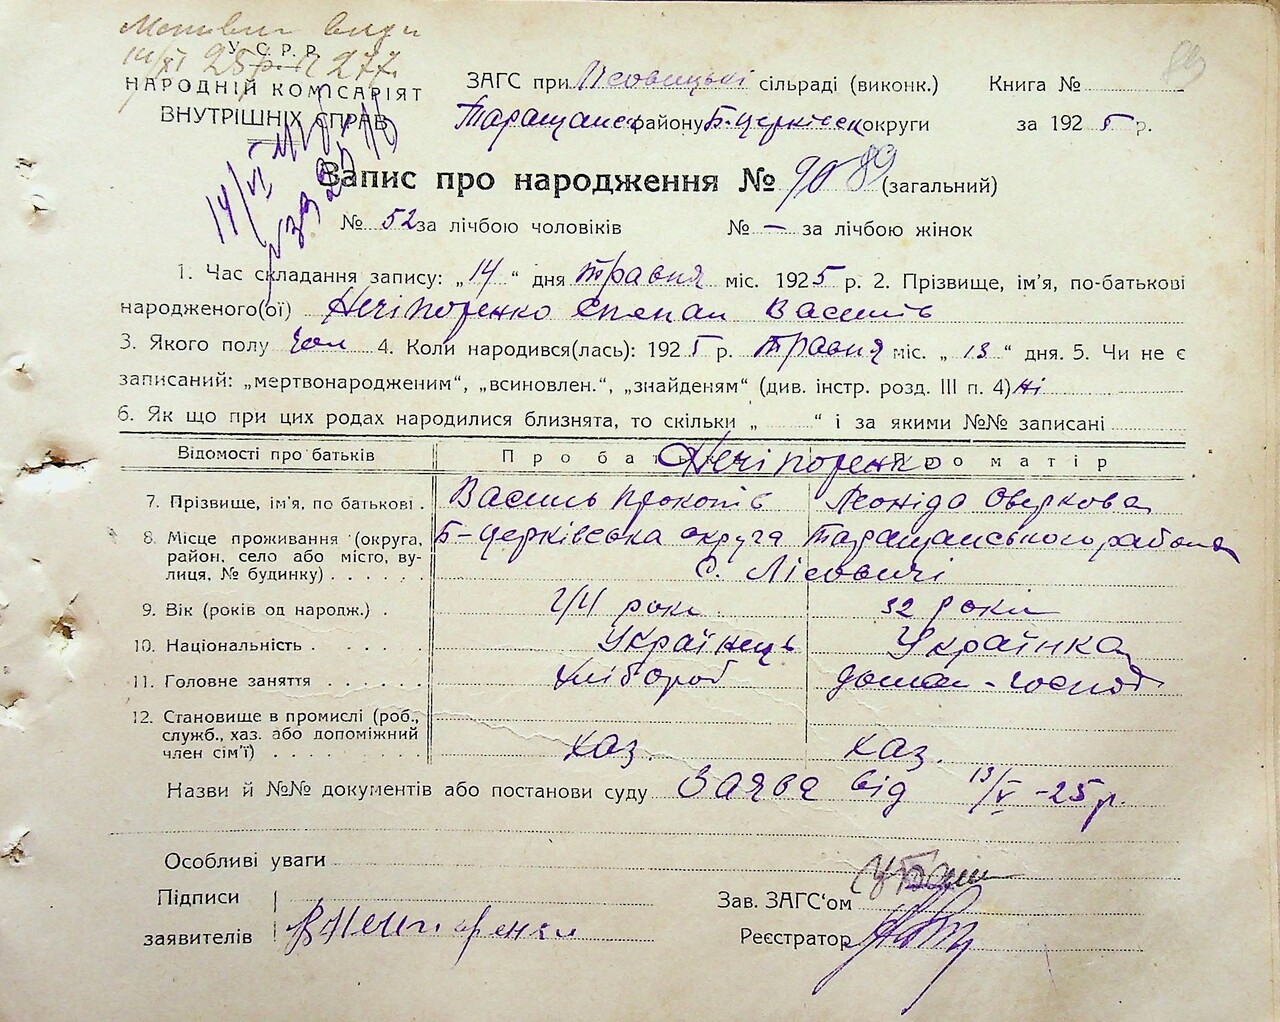 У.С.Р.Р.
НАРОДНІЙ КОМІСАРІЯТ
ВНУТРІШНІХ СПРАВ
ЗАГС при Лісовицькі сільраді (виконк.) Книга №
Таращанск району Б-церківськ округи за 1925 р.
Запис про народження № 90 89 (загальний)
№ 52 за лічбою чоловіків № — за лічбою жінок
1. Час складання запису: „14“ дня травня міс. 1925 р. 2. Прізвище, ім'я, по-батькові
народженого(ої) Нечіпоренко Степан Василів
3. Якого полу чол 4. Коли народився(лась): 1925 р. травня міс. „13“ дня. 5. Чи не є
записаний: „мертвонародженим“, „всиновлен.“, „знайденям“ (див. інстр. розд. III п. 4) ні
6. Як що при цих родах народилися близнята, то скільки „ “ і за якими №№ записані
Відомості про батьків Про батька Про матір
Нечіпоренко
7. Прізвище, ім'я, по батькові . Василь Прокопів Леоніда Оверкова
8. Місце проживання (округа, район, село або місто, вулиця, № будинку) . . . . . . Б-церківська округа Таращанського района
с. Лісовичі
9. Вік (років од народж.) . 44 роки 32 роки
10. Національність . . . . . Українець Українка
11. Головне заняття . . . . . . Хлібороб домаш-господ
12. Становище в промислі (роб.,
служб., хаз. або допоміжний
член сім'ї) . . . . . . . . хаз. хаз.
Назви й №№ документів або постанови суду Заява від 13/V-25 р.
Особливі уваги
Підписи
заявителів В Нечипоренко
Зав. ЗАГС‘ом
Реєстратор